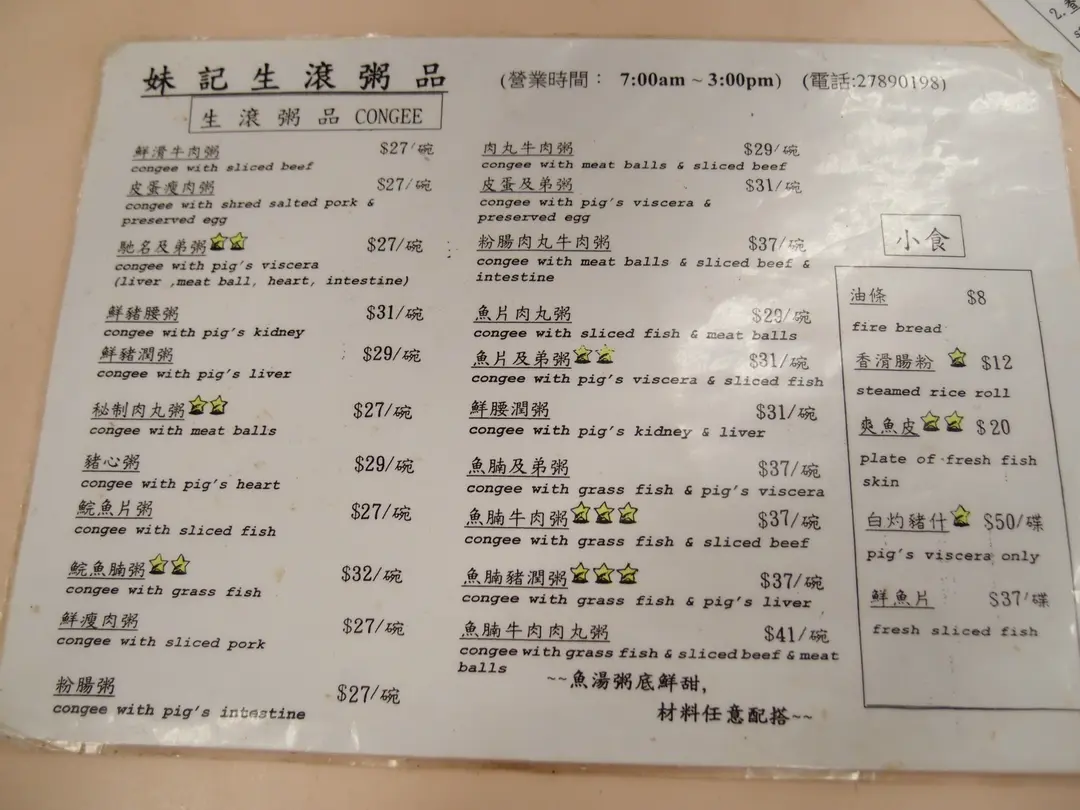 妹記生滾粥品 (營業時間： 7:00am ~ 3:00pm) (電話:27890198)
生滾粥品 CONGEE
鮮滑牛肉粥 $27/碗
congee with sliced beef
皮蛋瘦肉粥 $27/碗
congee with shred salted pork &
preserved egg
馳名及弟粥 $27/碗
congee with pig's viscera
(liver ,meat ball, heart, intestine)
鮮豬腰粥 $31/碗
congee with pig's kidney
鮮豬潤粥 $29/碗
congee with pig's liver
秘制肉丸粥 $27/碗
congee with meat balls
豬心粥 $29/碗
congee with pig's heart
鯇魚片粥 $27/碗
congee with sliced fish
鯇魚腩粥 $32/碗
congee with grass fish
鮮瘦肉粥 $27/碗
congee with sliced pork
粉腸粥 $27/碗
congee with pig's intestine
肉丸牛肉粥 $29/碗
congee with meat balls & sliced beef
皮蛋及弟粥 $31/碗
congee with pig's viscera &
preserved egg
粉腸肉丸牛肉粥 $37/碗
congee with meat balls & sliced beef &
intestine
魚片肉丸粥 $29/碗
congee with sliced fish & meat balls
魚片及弟粥 $31/碗
congee with pig's viscera & sliced fish
鮮腰潤粥 $31/碗
congee with pig's kidney & liver
魚腩及弟粥 $37/碗
congee with grass fish & pig's viscera
魚腩牛肉粥 $37/碗
congee with grass fish & sliced beef
魚腩豬潤粥 $37/碗
congee with grass fish & pig's liver
魚腩牛肉肉丸粥 $41/碗
congee with grass fish & sliced beef & meat
balls
~~魚湯粥底鮮甜,
材料任意配搭~~
小食
油條 $8
fire bread
香滑腸粉 $12
steamed rice roll
爽魚皮 $20
plate of fresh fish
skin
白灼豬什 $50/碟
pig's viscera only
鮮魚片 $37/碟
fresh sliced fish
2.